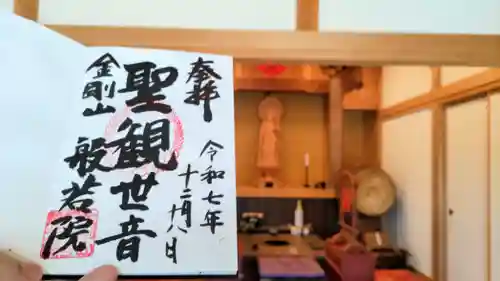 奉拝
令和七年
十二月十八日
聖観世音
金剛山
般若院